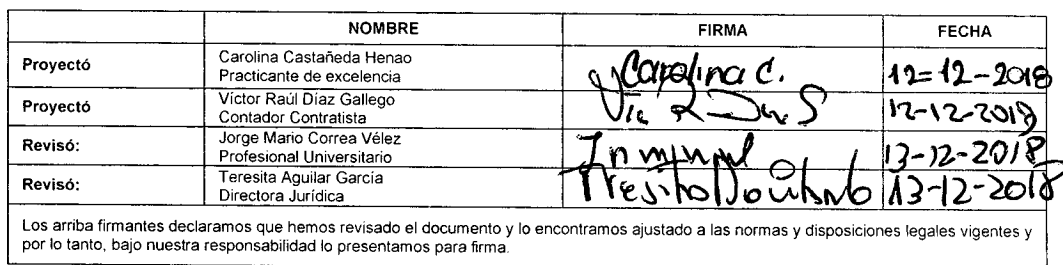 NOMBRE FIRMA FECHA
Proyectó Carolina Castañeda Henao
Practicante de excelencia Carolina C. 12-12-2018
Proyectó Víctor Raúl Díaz Gallego
Contador Contratista 12-12-2018
Revisó: Jorge Mario Correa Vélez
Profesional Universitario 13-12-2018
Revisó: Teresita Aguilar García
Directora Jurídica 13-12-2018
Los arriba firmantes declaramos que hemos revisado el documento y lo encontramos ajustado a las normas y disposiciones legales vigentes y
por lo tanto, bajo nuestra responsabilidad lo presentamos para firma.